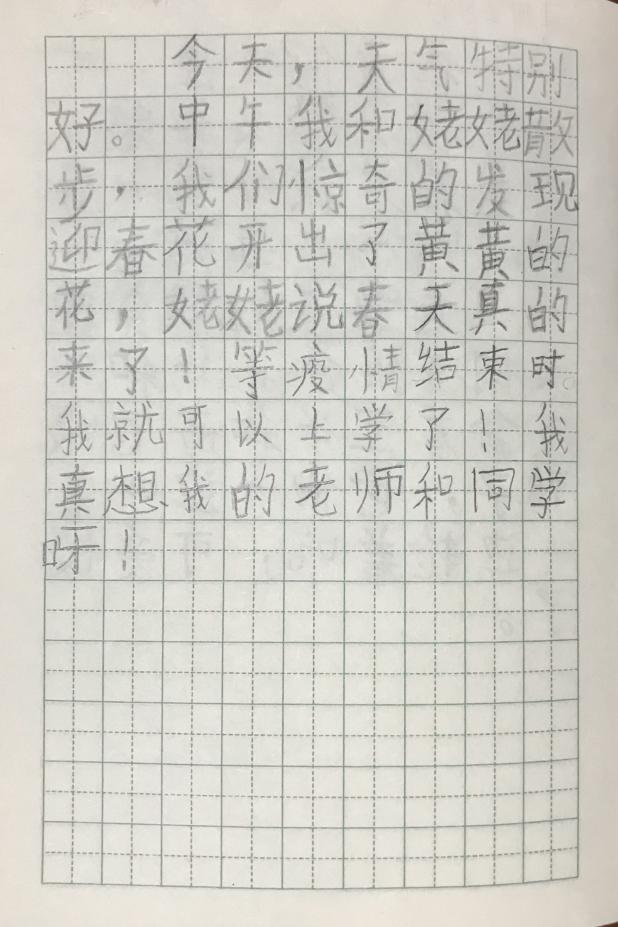 今天，天气特别
好。中午我和姥姥散
步，我们惊奇的发现
迎春花开出了黄黄的
花，姥姥说春天真的
来了！等疫情结束时。
我就可以上学了！我
真想我的老师和同学
呀！